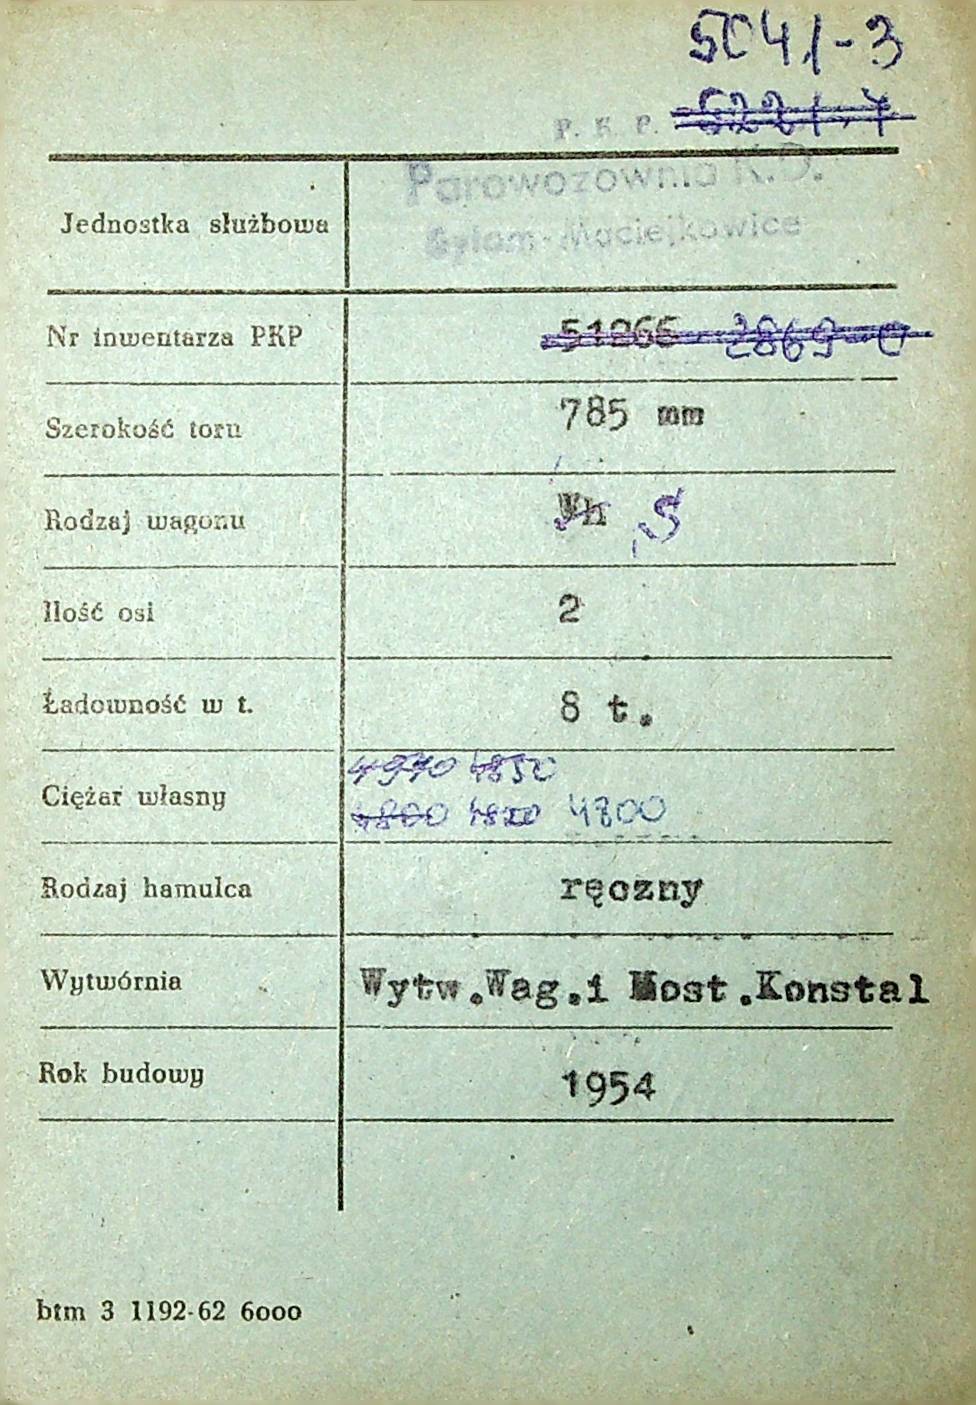 5041-3
5221-7
P. K. P.
Parowozownia K.D.
Bytom-Maciejkowice
Jednostka służbowa
Nr inwentarza PKP 51266 2869-0
Szerokość toru 785 mm
Rodzaj wagonu Wh S
Ilość osi 2
Ładowność w t. 8 t.
4970 4850
Ciężar własny 4800 4820 4700
Rodzaj hamulca ręczny
Wytwórnia Wytw.Wag.i Most.Konstal
Rok budowy 1954
btm 3 1192-62 6000